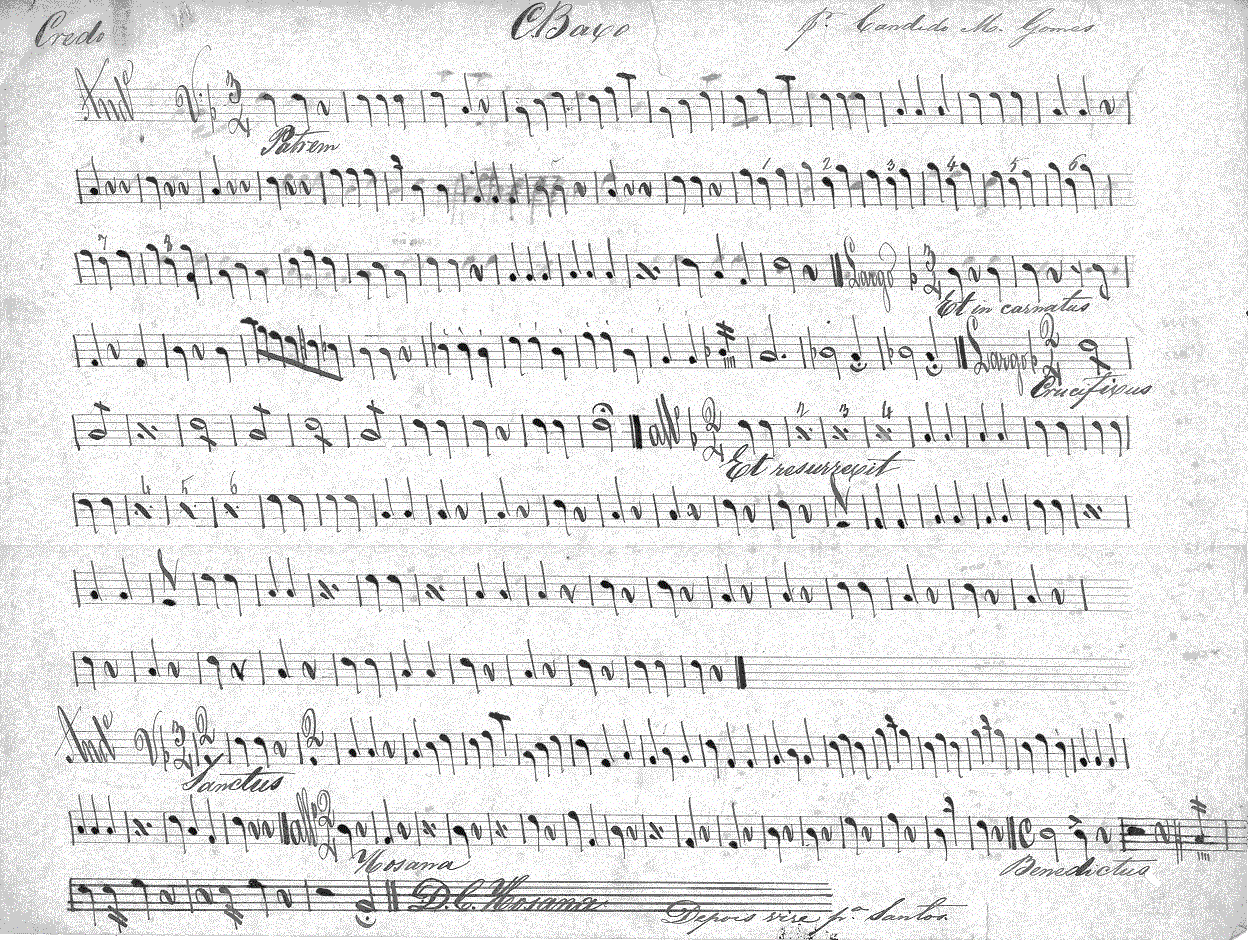 Credo C. Baxo pr. Candido M. Gomes
Andᵉ 3 4
Patrem
1 2 3 4 5 6
7 8 Largo 3 4
Et in carnatus
Largo 2 4
Crucifixus
allº 2 4 2 3 4
Et resurrexit
4 5 6
Andᵉ 3 4 2 2
Sanctus
allº 2 4 C
Hosana Benedictus
D.C. Hosana
Depois vire pª Santos